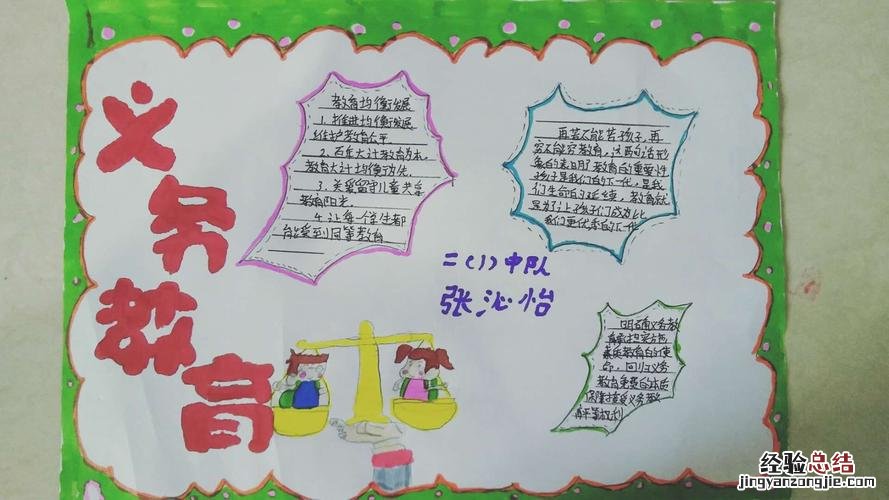 义务教育
教育均衡发展
1. 推进均衡发展
维护教育公平
2. 百年大计教育为本.
教育大计均衡为先.
3. 关爱留守儿童共享
教育阳光.
4. 让每个学生都
能受到同等教育
再苦不能苦孩子,再
穷不能穷教育,这两句话形
象的表明了教育的重要性
孩子是我们的下一代,是我
们生命的延续,教育就
是为了让孩子们成为比
我们更优秀的下一代
二(1)中队
张沁怡
明确义务教
育承担实施
素质教育的使
命,回归义务
教育免费的本质
保障接受义务教
育平等权利
经验总结
jingyanzongjie.com